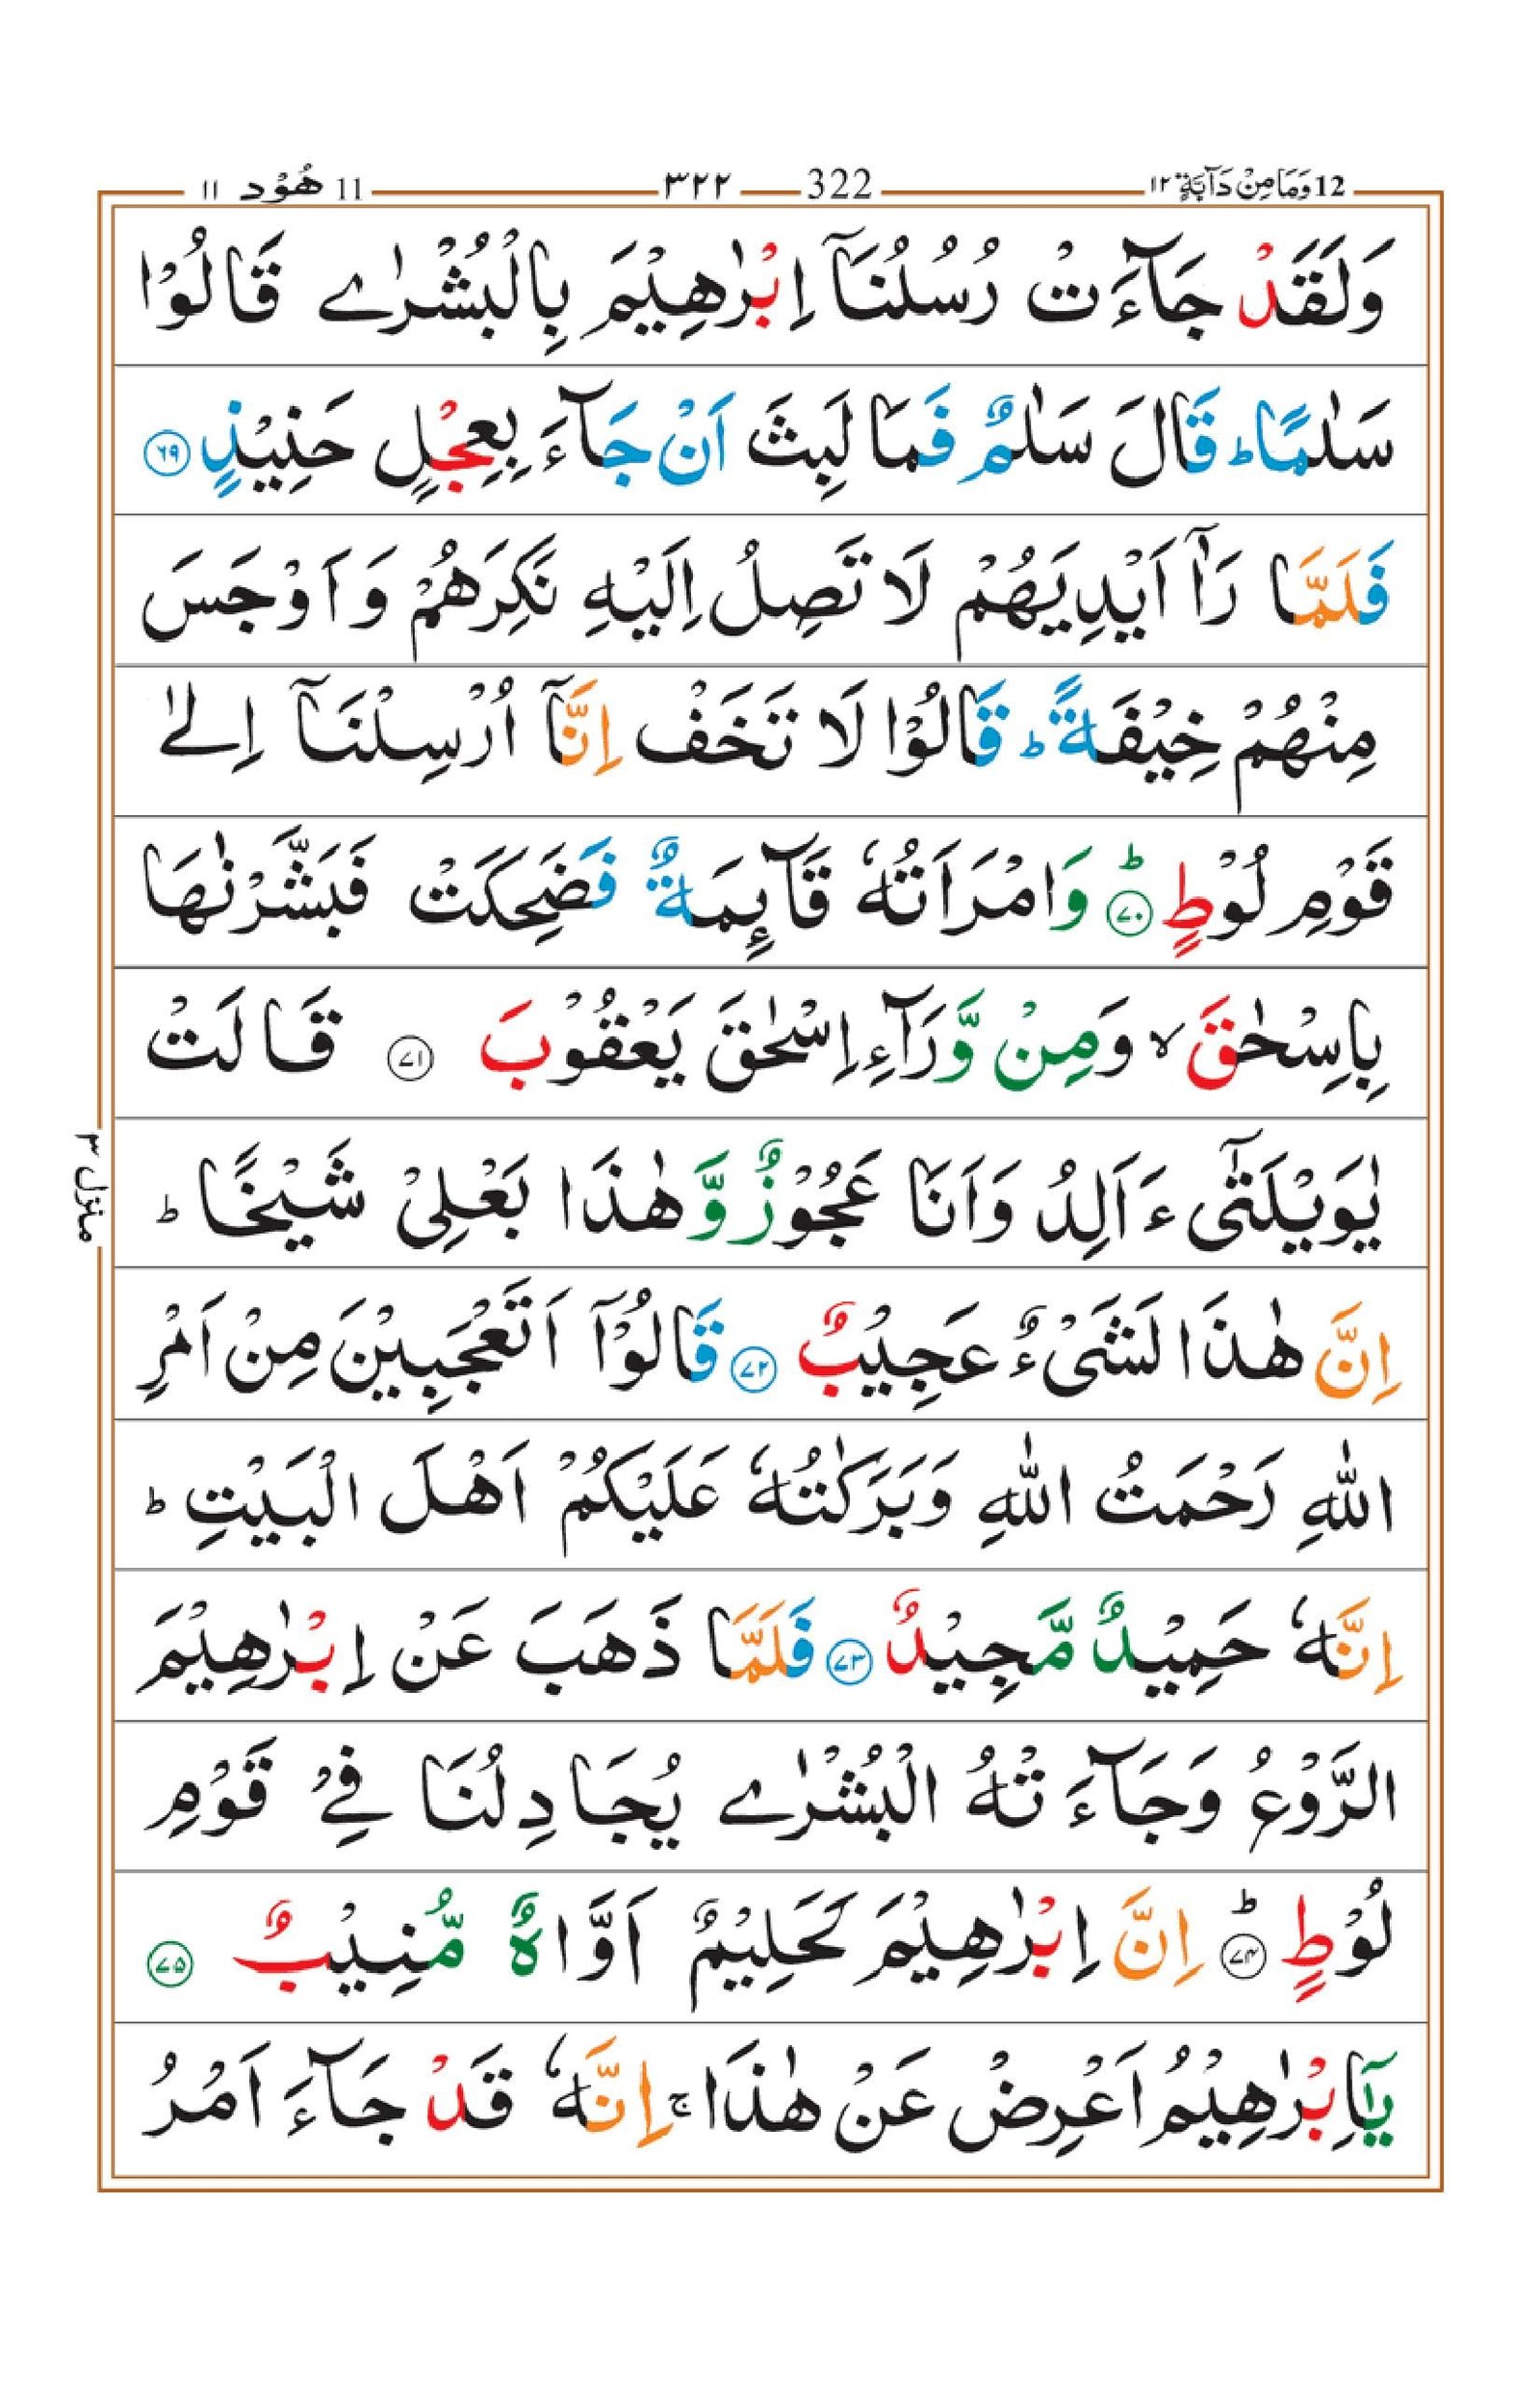 12 وَمَا مِنْ دَآبَّةٍ ١٢ 322 ٣٢٢ 11 هُوْد ١١
وَلَقَدْ جَآءَتْ رُسُلُنَاۤ اِبْرٰهِيْمَ بِالْبُشْرٰے قَالُوْا
سَلٰمًاؕ قَالَ سَلٰمٌ فَمَا لَبِثَ اَنْ جَآءَ بِعِجْلٍ حَنِيْذٍ ۶۹
فَلَمَّا رَاٰۤ اَيْدِيَهُمْ لَا تَصِلُ اِلَيْهِ نَكِرَهُمْ وَاَوْجَسَ
مِنْهُمْ خِيْفَةًؕ قَالُوْا لَا تَخَفْ اِنَّاۤ اُرْسِلْنَاۤ اِلٰے
قَوْمِ لُوْطٍؕ ۷۰ وَامْرَاَتُهٗ قَآىِٕمَةٌ فَضَحِكَتْ فَبَشَّرْنٰهَا
بِاِسْحٰقَۙ وَمِنْ وَّرَآءِ اِسْحٰقَ يَعْقُوْبَ ۷۱ قَالَتْ
يٰوَيْلَتٰٓى ءَاَلِدُ وَاَنَا عَجُوْزٌ وَّهٰذَا بَعْلِىْ شَيْخًاؕ
اِنَّ هٰذَا لَشَىْءٌ عَجِيْبٌ ۷۲ قَالُوْۤا اَتَعْجَبِيْنَ مِنْ اَمْرِ
اللّٰهِ رَحْمَتُ اللّٰهِ وَبَرَكٰتُهٗ عَلَيْكُمْ اَهْلَ الْبَيْتِؕ
اِنَّهٗ حَمِيْدٌ مَّجِيْدٌ ۷۳ فَلَمَّا ذَهَبَ عَنْ اِبْرٰهِيْمَ
الرَّوْعُ وَجَآءَتْهُ الْبُشْرٰے يُجَادِلُنَا فِىْ قَوْمِ
لُوْطٍؕ ۷۴ اِنَّ اِبْرٰهِيْمَ لَحَلِيْمٌ اَوَّاهٌ مُّنِيْبٌ ۷۵
يٰۤاِبْرٰهِيْمُ اَعْرِضْ عَنْ هٰذَاۚ اِنَّهٗ قَدْ جَآءَ اَمْرُ
منزل ٣